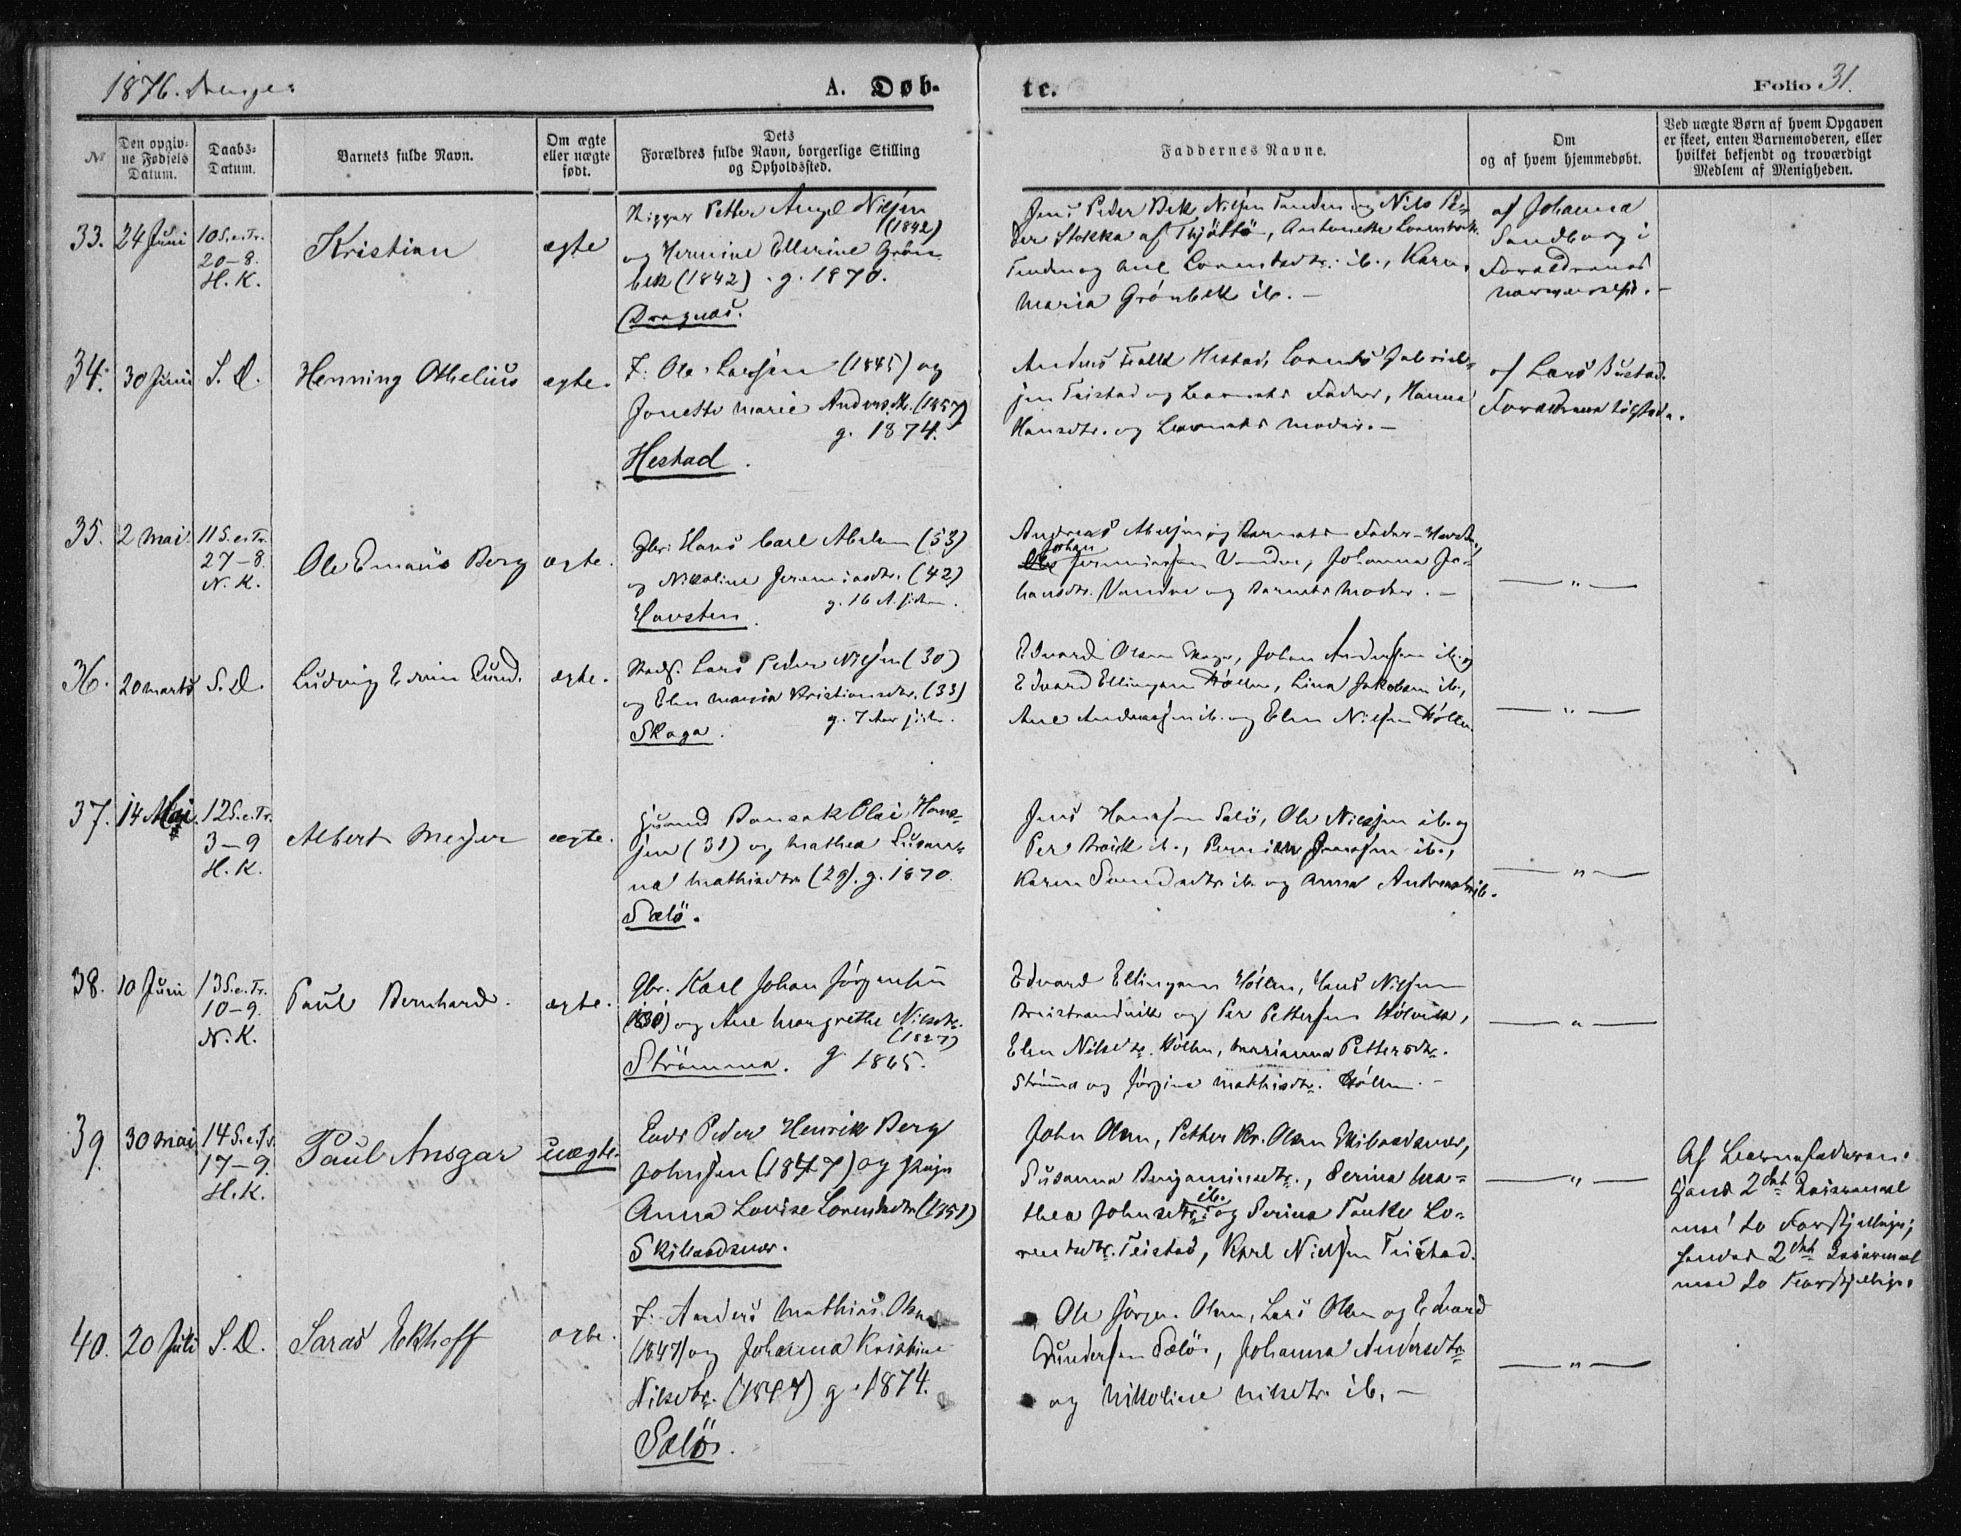 1876. Drenge.
A. Døb-
te.
Folio 31.
No
Den opgiv-
ne Fødsels
Datum.
Daabs-
Datum.
Barnets fulde Navn.
Om ægte
eller uægte
født.
Dets
Forældres fulde Navn, borgerlige Stilling
og Opholdssted.
Faddernes Navne.
Om
og af hvem hjemmedøbt.
Ved uægte Børn af hvem Opgaven
er skeet, enten Barnemoderen, eller
hvilket bekjendt og troværdigt
Medlem af Menigheden.
33.
24 Juni
10 S. e. Tr.
20-8.
H. K.
Kristian
ægte
Petter Angel Nilsen
(1842)
og Hermine Ellerine Grøn-
bek (1842) . g. 1870.
Dragnæs.
Jens Peder Bek Nilsen Tenden og Nils Pe-
der Stokka af Thjøttø, Antonette Lorentsdtr.
Tenden og Ane Lorentsdtr. ib., Karen
Maria Grønbek ib. –
af Johanna
Sandborg i
Forældrenes
nærværelse. –
34.
30 Juni
S. D.
Henning Othelius
ægte.
F. Ole Larsen (1845) og
Jonette Marie Andersdtr. (1857)
g. 1874.
Hestad.
Anders Falk Hestad, Lorents Gabriel-
sen Teistad og Barnets Fader, Hanna
Hansdtr. og Barnets Moder. –
af Lars Bustad.
Forældrene tilstede.
35.
2 Mai.
11 S. e. Tr.
27-8.
N. K.
Ole Emaus Berg
ægte.
Gbr. Hans Carl Abelsen (53)
og Nikoline Jeremiasdtr. (42)
g. 16 A. siden.
Havsten.
Andreas Abelsen og Barnets Fader - Havsten,
Johan
Ole Jermiassen Vandve, Johanna Jo-
hansdtr. Vandve og Barnets Moder. –
— " —
36.
20 Marts
S. D.
Ludvig Edvin Lund.
ægte.
Lars Peder Nilsen (30)
og Elen Maria Kristiansdtr. (33)
g. 7 Aar siden.
Skaga.
Edvard Olsen Skaga, Johan Andersen ib. og
Edvard Ellingsen Hølen, Lina Jakobsen ib.,
Ane Andreassen ib. og Elen Nilsen Hølen
— " —
37.
14 Mai.
12 S. e. Tr.
3-9
H. K.
Albert Meyer
ægte.
Bonsak Olai Hans-
sen (31) og Mathea Susan-
na Mathisdtr. (29). g. 1870.
Sælø.
Jens Hanssen Sælø, Ole Nilssen ib. og
Per ib., Jenssen ib.,
Karen ib. og Anna Andreasdtr. ib.
— " —
38.
10 Juni
13 S. e. Tr.
10-9.
N. K.
Paul Bernhard.
ægte.
Gbr. Karl Johan Jørgensen
og Ane Margrethe Nilsdtr.
(1827)
Strømma. g 1865.
Edvard Ellingsen Hølen, Hans Nilsen
og Per Pettersen Hølvik,
Elen Nilsdtr. Hølen, Marianna Pettersdtr.
Strømma og Jørgine Mathisdtr. Hølen. –
— " —
39.
30 Mai
14 S. e. Tr.
17-9.
H. K.
Paul Ansgar
uægte.
Peder Henrik Berg
Johnsen (1847) og Pige
Anna Lovise Lorentsdtr. (1851)
Skibaadsvær.
John Olsen, Petter Kr. Olsen Skibaadsvær,
Susanna Benjaminsdtr., Serina Ma-
ib.
thea Johnsdtr. og Serina Lo-
rentsdtr. Teistad, Karl Nielsen Teistad.
— " —
Af Barnefaderen.
Hans 2det Leiermaal
med to Forskjellige;
hendes 2det Leiermaal
med to Forskjellige.
40.
20 Juli
S. D.
Saras Ekhoff
ægte.
F. Anders Mathias Olsen
(1847) og Johanna Kristine
Nilsdtr. (1847) g. 1874.
Sælø.
Ole Jørgen Olsen, Lars Olsen og Edvard
Gundersen Sælø, Johanna Andersdtr.
og Nikoline Nilsdtr. ib. –
— " —